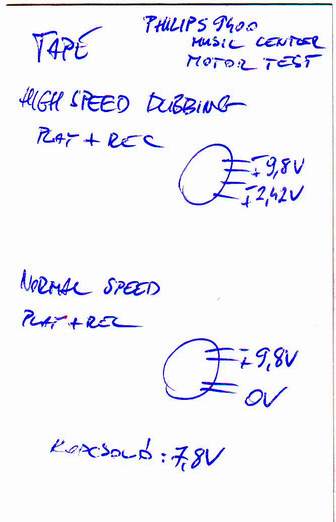 TAPE
PHILIPS 9400
MUSIC CENTER
MOTOR TEST
HIGH SPEED DUBBING
PLAY + REC
-
+9,8V
-
+2,42V
NORMAL SPEED
PLAY + REC
-
+9,8V
0V
KAPCSOLÓ : 7,8V